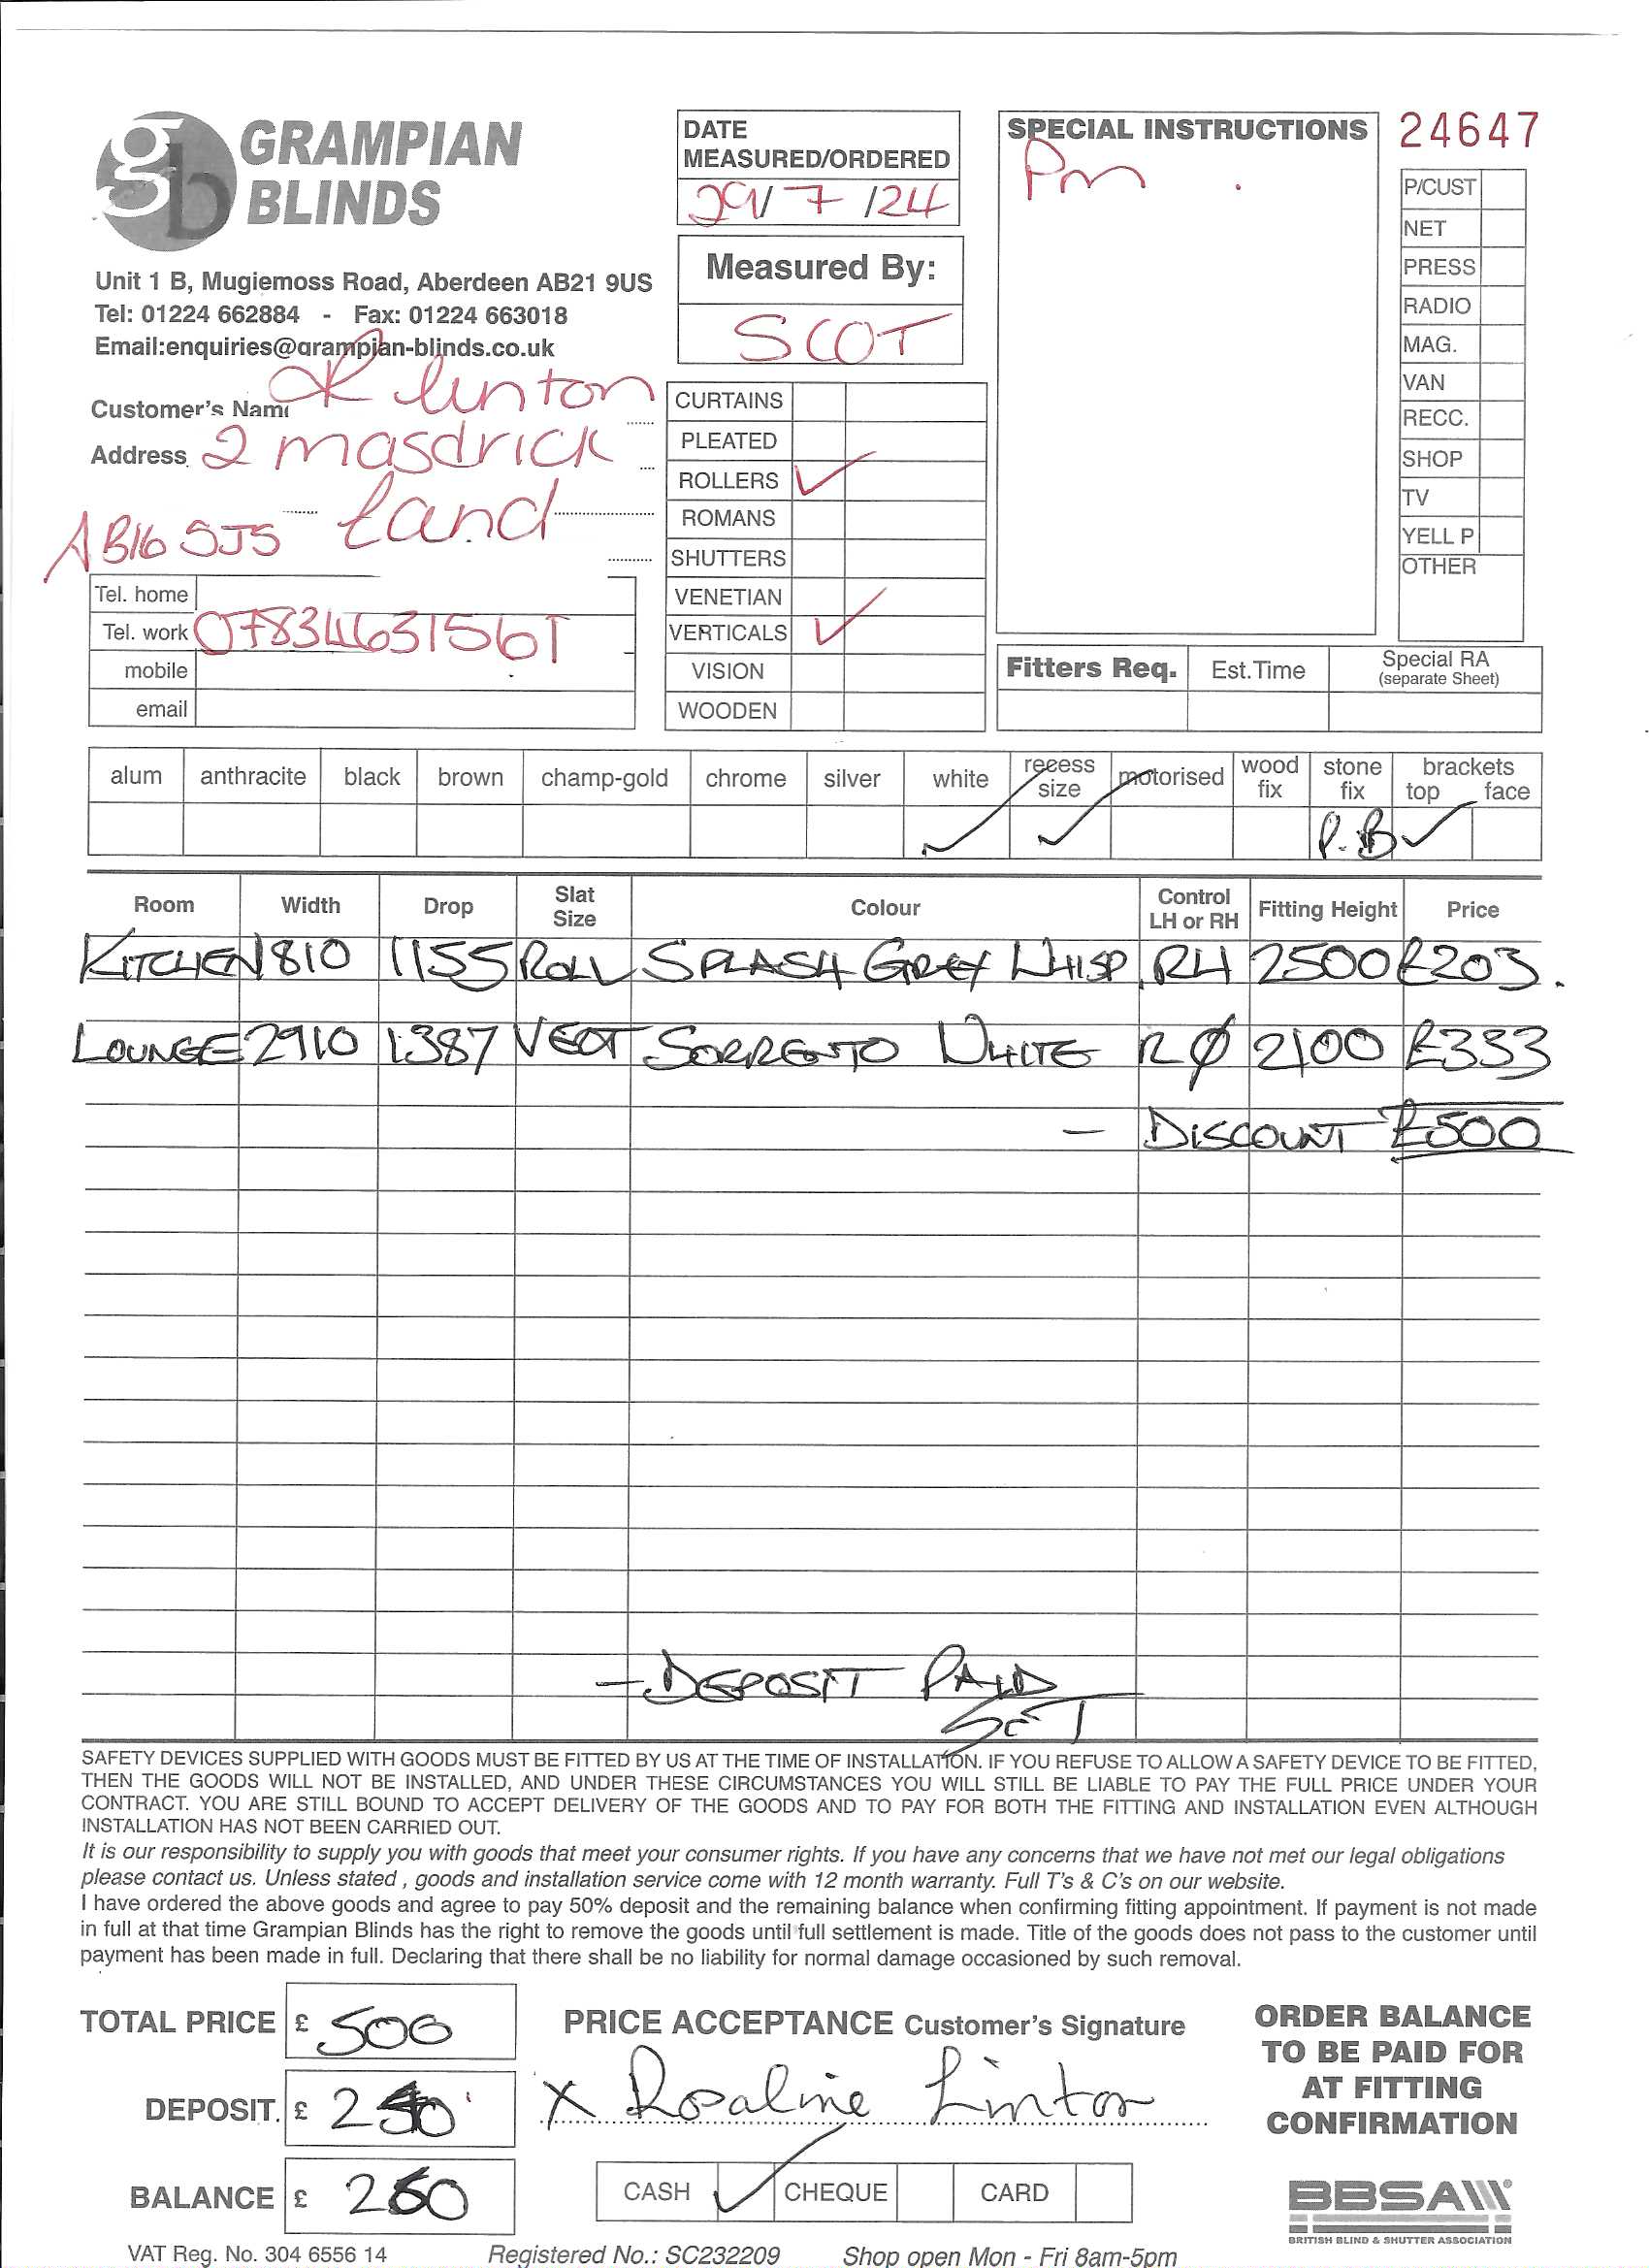 GRAMPIAN
BLINDS
Unit 1 B, Mugiemoss Road, Aberdeen AB21 9US
Tel: 01224 662884 - Fax: 01224 663018
Email:enquiries@grampian-blinds.co.uk
DATE
MEASURED/ORDERED
29/ 7 /24
Measured By:
SCOT
SPECIAL INSTRUCTIONS
Pm
24647
P/CUST
NET
PRESS
RADIO
MAG.
VAN
RECC.
SHOP
TV
YELL P
OTHER
Customer's Name R linton
Address 2 masdrick
land
AB16 5JS
Tel. home
Tel. work
mobile
email
CURTAINS
PLEATED
ROLLERS ✓
ROMANS
SHUTTERS
VENETIAN
VERTICALS ✓
VISION
WOODEN
Fitters Req. Est.Time Special RA
(separate Sheet)
alum anthracite black brown champ-gold chrome silver white recess size motorised wood fix stone fix brackets top face
✓ ✓ P.B ✓
Room Width Drop Slat Size Colour Control LH or RH Fitting Height Price
KITCHEN 1810 1155 ROLL SPLASH GREY WHISP RH 2500 £203.
LOUNGE 2910 1387 VERT SORRENTO WHITE R 2100 £333
- DISCOUNT £500
- DEPOSIT PAID
SAFETY DEVICES SUPPLIED WITH GOODS MUST BE FITTED BY US AT THE TIME OF INSTALLATION. IF YOU REFUSE TO ALLOW A SAFETY DEVICE TO BE FITTED,
THEN THE GOODS WILL NOT BE INSTALLED, AND UNDER THESE CIRCUMSTANCES YOU WILL STILL BE LIABLE TO PAY THE FULL PRICE UNDER YOUR
CONTRACT. YOU ARE STILL BOUND TO ACCEPT DELIVERY OF THE GOODS AND TO PAY FOR BOTH THE FITTING AND INSTALLATION EVEN ALTHOUGH
INSTALLATION HAS NOT BEEN CARRIED OUT.
It is our responsibility to supply you with goods that meet your consumer rights. If you have any concerns that we have not met our legal obligations
please contact us. Unless stated , goods and installation service come with 12 month warranty. Full T's & C's on our website.
I have ordered the above goods and agree to pay 50% deposit and the remaining balance when confirming fitting appointment. If payment is not made
in full at that time Grampian Blinds has the right to remove the goods until full settlement is made. Title of the goods does not pass to the customer until
payment has been made in full. Declaring that there shall be no liability for normal damage occasioned by such removal.
TOTAL PRICE £ 500
DEPOSIT. £ 250
BALANCE £ 250
PRICE ACCEPTANCE Customer's Signature
X Rosaline Linton
CASH ✓ CHEQUE CARD
ORDER BALANCE
TO BE PAID FOR
AT FITTING
CONFIRMATION
BBSA
BRITISH BLIND & SHUTTER ASSOCIATION
VAT Reg. No. 304 6556 14 Registered No.: SC232209 Shop open Mon - Fri 8am-5pm